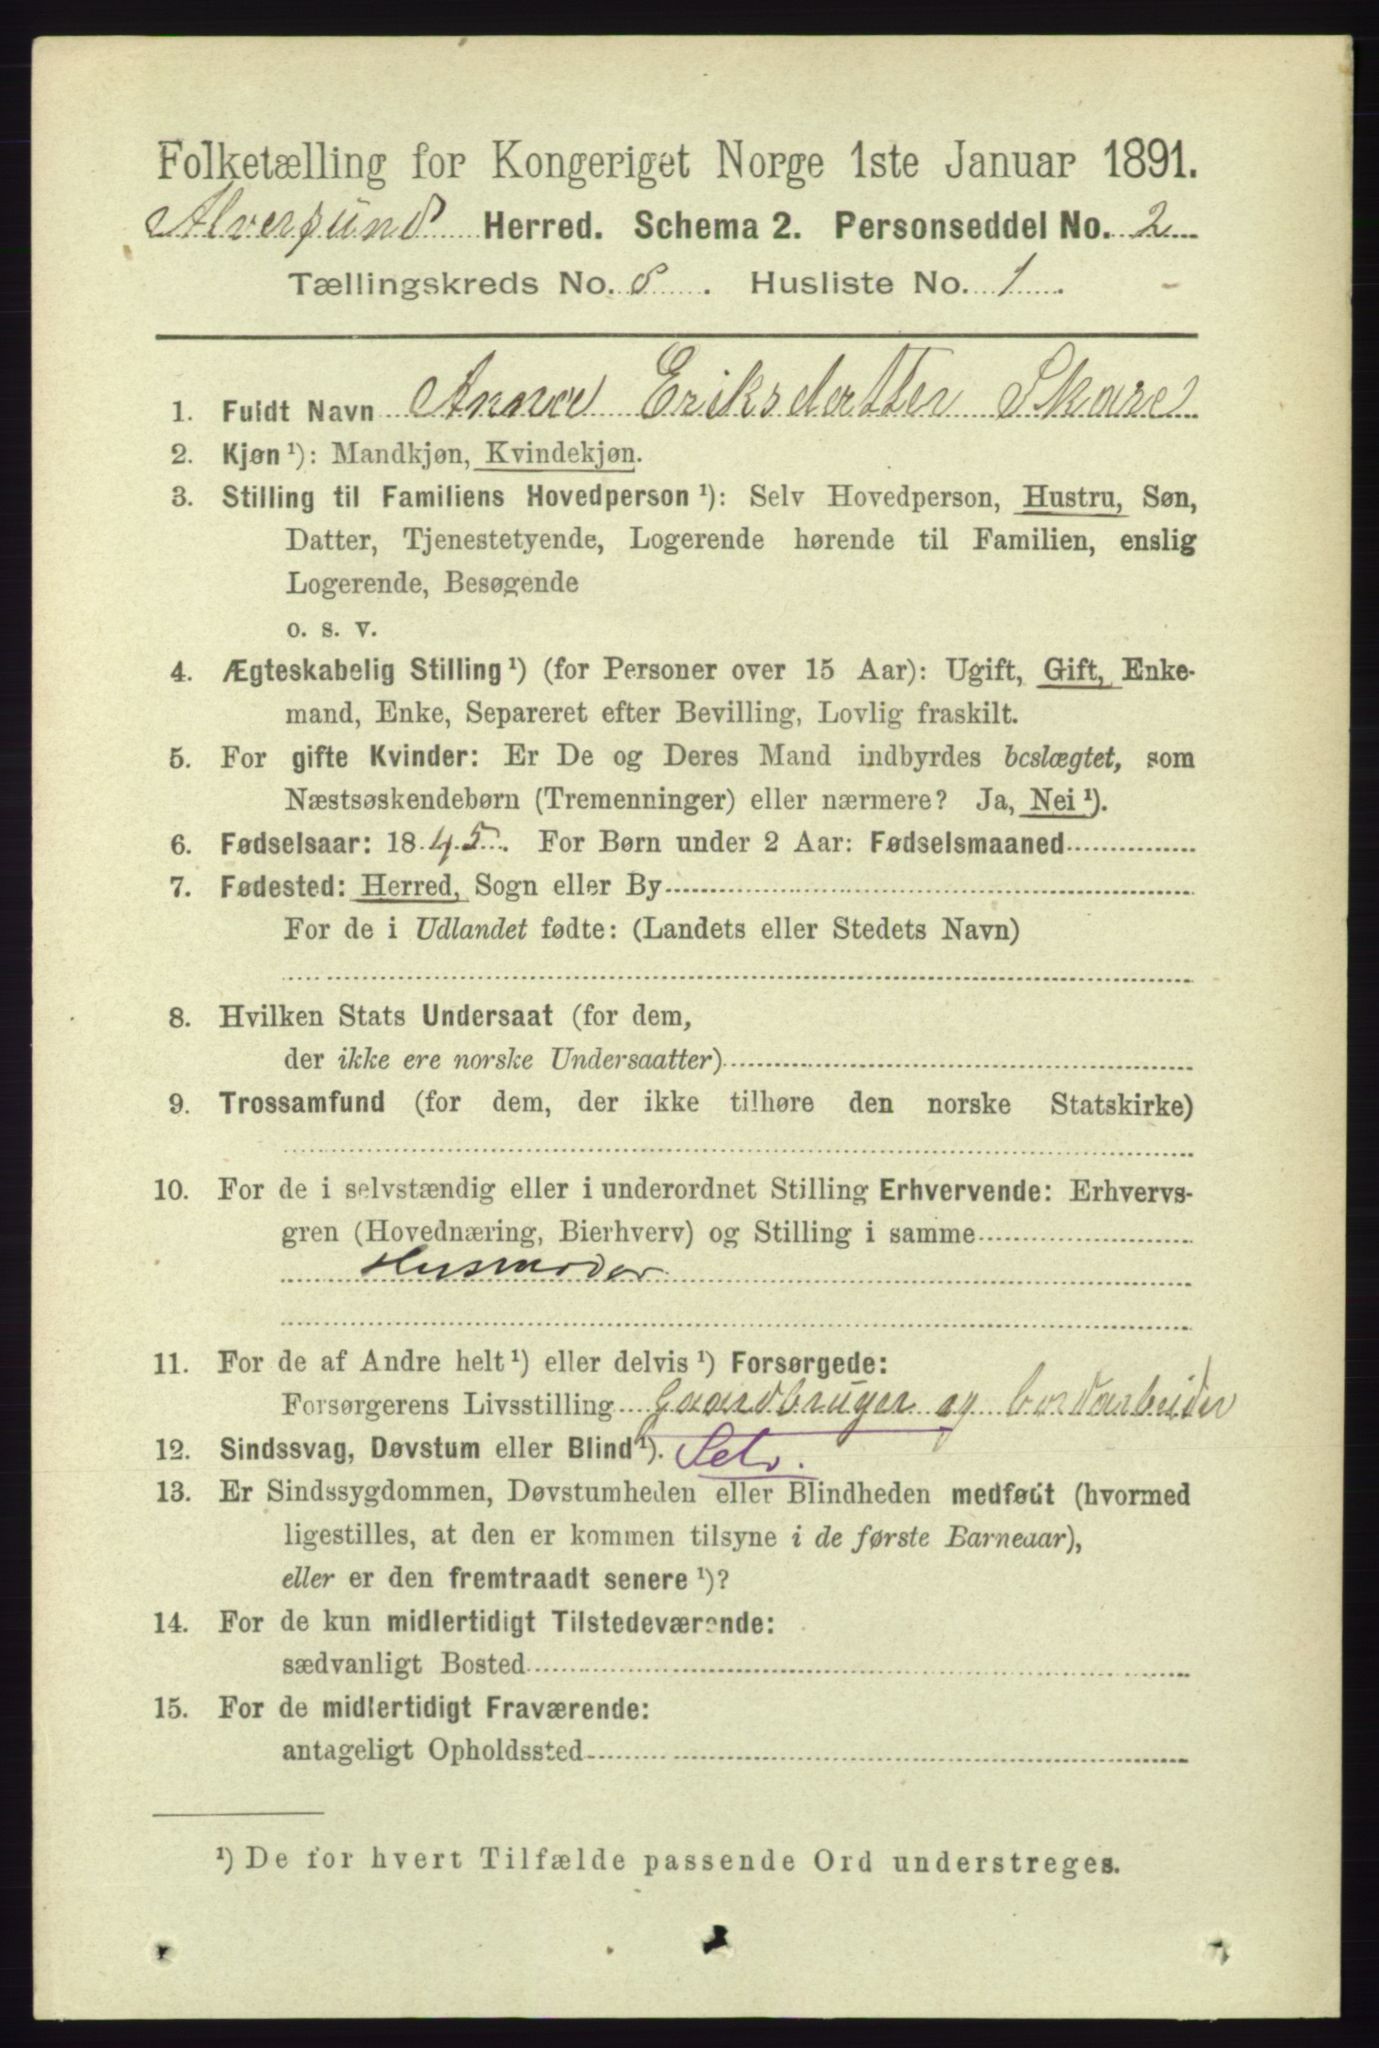 Folketælling for Kongeriget Norge 1ste Januar 1891.
Alversund Herred. Schema 2. Personseddel No. 2
Tællingskreds No. 8. Husliste No. 1.
1. Fuldt Navn Anna Eriksdatter Skare
2. Kjøn ¹): Mandkjøn, Kvindekjøn.
3. Stilling til Familiens Hovedperson ¹): Selv Hovedperson, Hustru, Søn,
Datter, Tjenestetyende, Logerende hørende til Familien, enslig
Logerende, Besøgende
o. s. v.
4. Ægteskabelig Stilling ¹) (for Personer over 15 Aar): Ugift, Gift, Enke-
mand, Enke, Separeret efter Bevilling, Lovlig fraskilt.
5. For gifte Kvinder: Er De og Deres Mand indbyrdes beslægtet, som
Næstsøskendebørn (Tremenninger) eller nærmere? Ja, Nei ¹).
6. Fødselsaar: 1845. For Børn under 2 Aar: Fødselsmaaned
7. Fødested: Herred, Sogn eller By
For de i Udlandet fødte: (Landets eller Stedets Navn)
8. Hvilken Stats Undersaat (for dem,
der ikke ere norske Undersaatter)
9. Trossamfund (for dem, der ikke tilhøre den norske Statskirke)
10. For de i selvstændig eller i underordnet Stilling Erhvervende: Erhvervs-
gren (Hovednæring, Bierhverv) og Stilling i samme
Husmoder
11. For de af Andre helt ¹) eller delvis ¹) Forsørgede:
Forsørgerens Livsstilling Gaardbruger og bordarbeider
12. Sindssvag, Døvstum eller Blind ¹). Selv.
13. Er Sindssygdommen, Døvstumheden eller Blindheden medfødt (hvormed
ligestilles, at den er kommen tilsyne i de første Barneaar),
eller er den fremtraadt senere ¹)?
14. For de kun midlertidigt Tilstedeværende:
sædvanligt Bosted
15. For de midlertidigt Fraværende:
antageligt Opholdssted
¹) De for hvert Tilfælde passende Ord understreges.